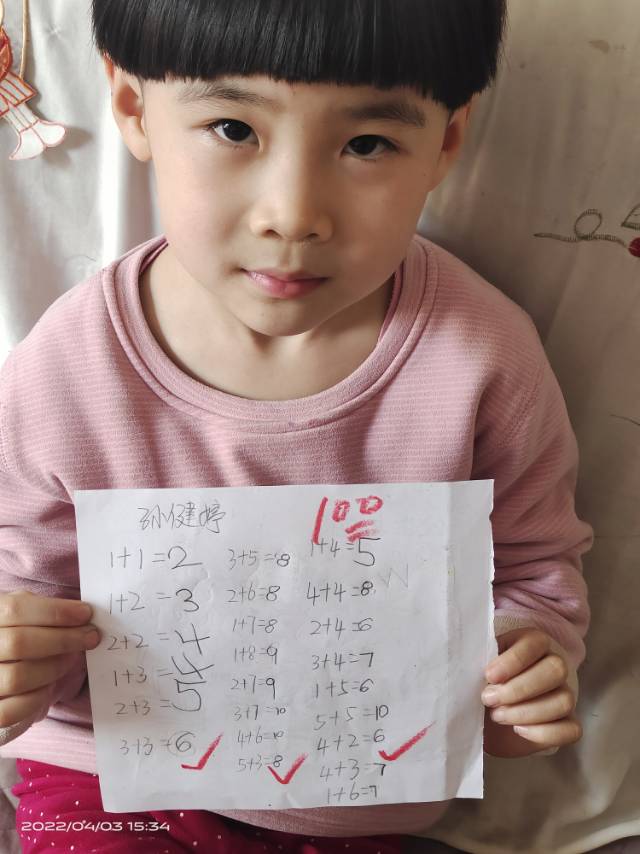 孙健婷
100
1+1=2
1+2=3
2+2=4
1+3=4
2+3=5
3+3=6
3+5=8
2+6=8
1+7=8
1+8=9
2+7=9
3+7=10
4+6=10
5+3=8
1+4=5
4+4=8
2+4=6
3+4=7
1+5=6
5+5=10
4+2=6
4+3=7
1+6=7
2022/04/03 15:34